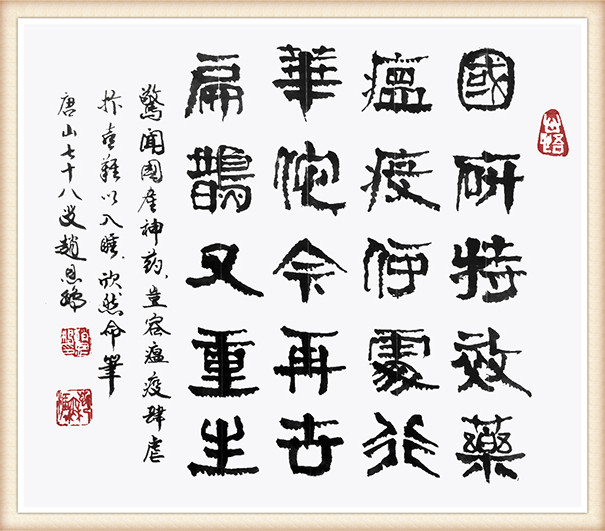 國研特效藥
瘟疫何處行
華佗今再世
扁鵲又重生
驚聞國產神药,豈容瘟疫肆虐
抃喜難以入睡,欣然命筆
唐山七十八叟趙恩